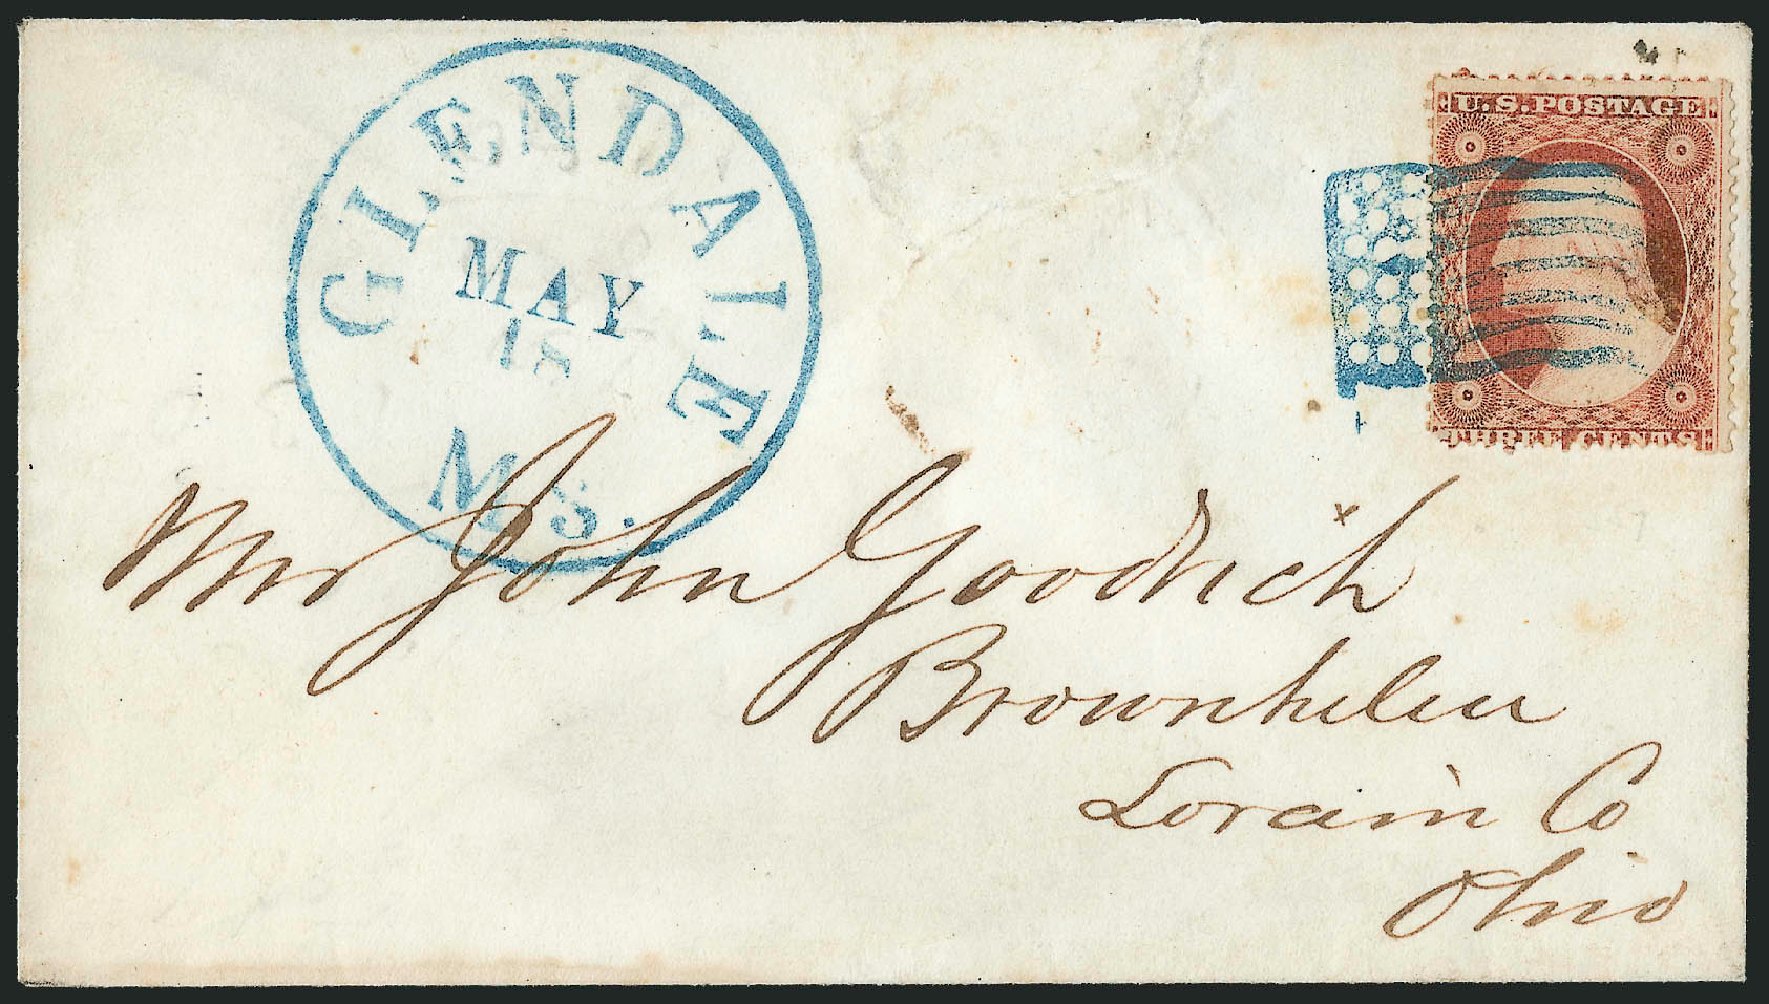 GLENDALE
MAY
18
MS.
U.S. POSTAGE
THREE CENTS
Mr John Goodrich
Brownhelm
Lorain Co
Ohio